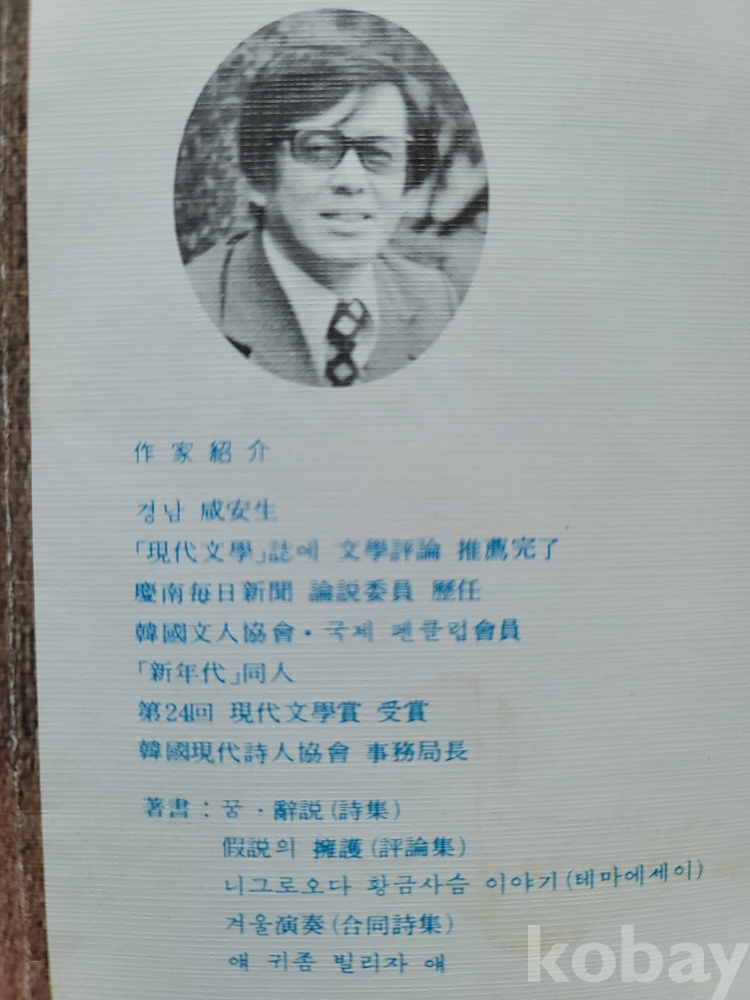 作家紹介
경남 咸安生
「現代文學」誌에 文學評論 推薦完了
慶南每日新聞 論說委員 歷任
韓國文人協會·국제 펜클럽會員
「新年代」同人
第24回 現代文學賞 受賞
韓國現代詩人協會 事務局長
著書 : 꿈·辭說(詩集)
假說의 擁護(評論集)
니그로오다 황금사슴 이야기(테마에세이)
겨울演奏(合同詩集)
얘 귀좀 빌리자 얘
kobay